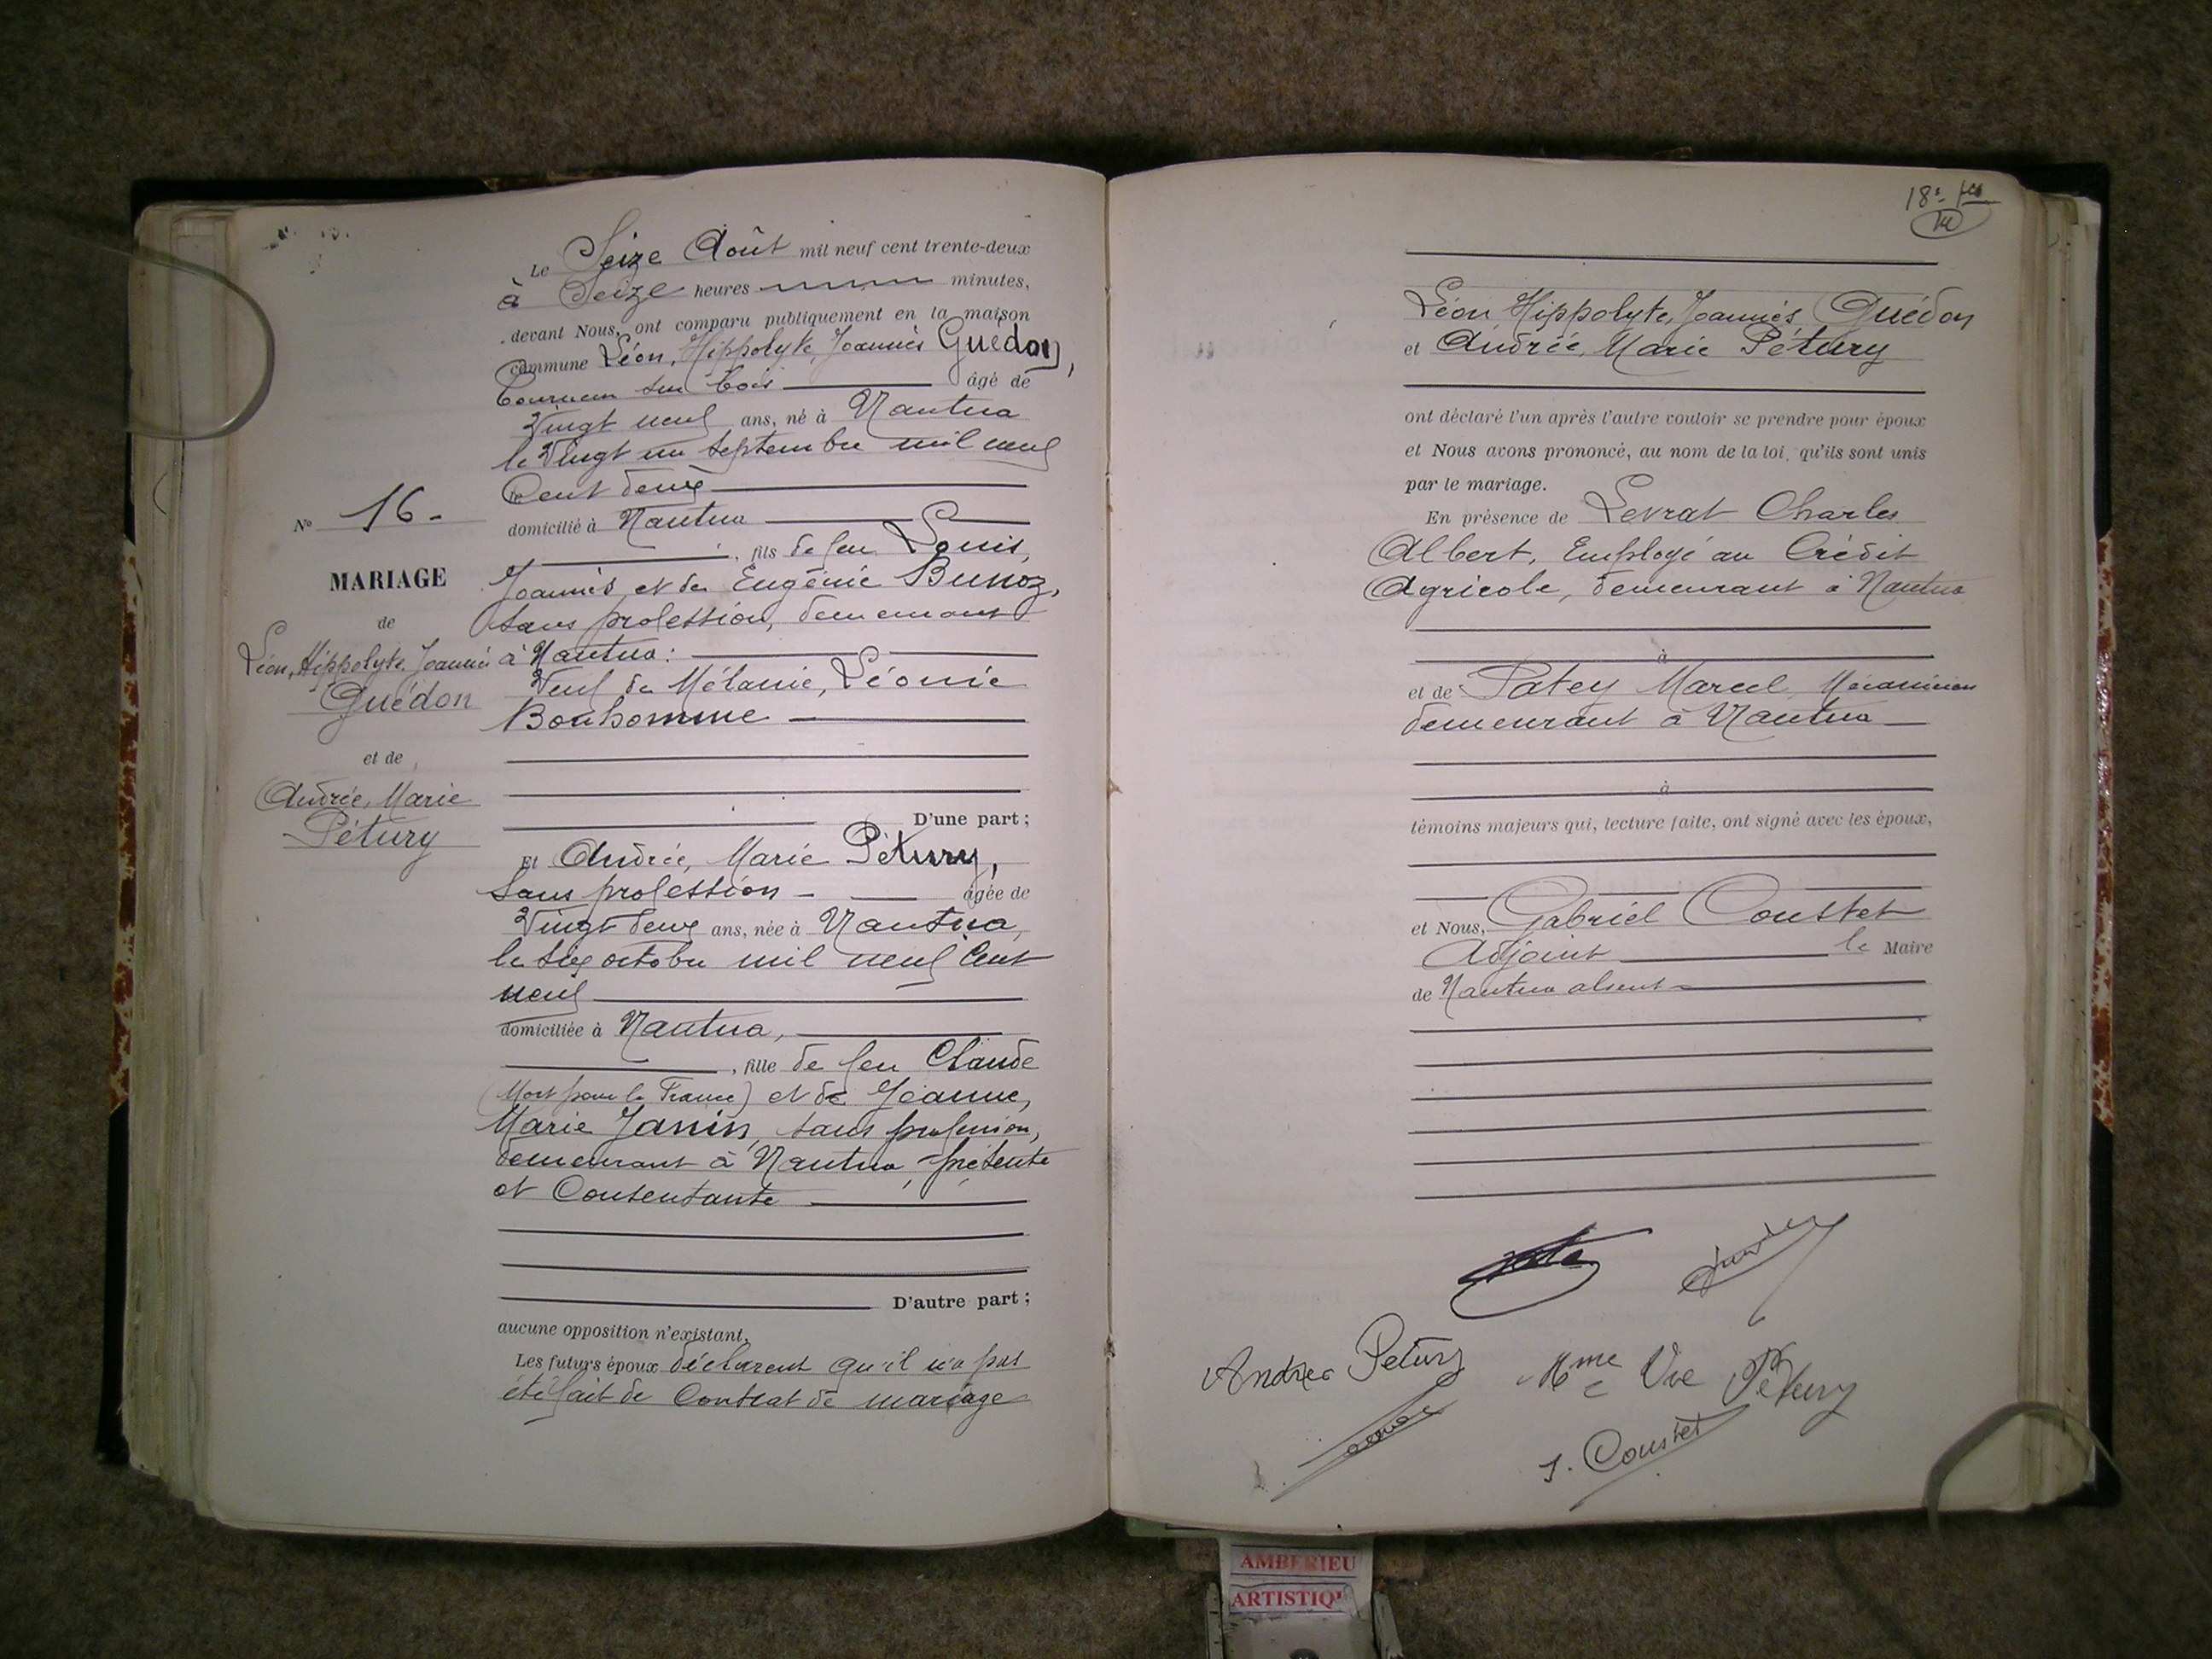 Le Seize Août mil neuf cent trente-deux
à Seize heures minutes,
devant Nous, ont comparu publiquement en la maison
commune Léon, Hippolyte, Joannès Guédon,
Tourneur sur bois âgé de
Vingt neuf ans, né à Nantua
le Vingt un Septembre mil neuf
Cent deux
domicilié à Nantua
, fils de feu Louis,
Joannès, et de Eugénie Bunoz,
Sans profession, demeurant
à Nantua :
Veuf de Mélanie, Léonie
Bonhomme
D'une part ;
Et Andrée, Marie Pétury,
Sans profession - âgée de
Vingt deux ans, née à Nantua,
le Six octobre mil neuf Cent
neuf
domiciliée à Nantua,
, fille de feu Claude
(Mort pour la France) et de Jeanne,
Marie Janin, sans profession,
demeurant à Nantua, présente
et Consentante
D'autre part ;
aucune opposition n'existant.
Les futurs époux déclarent qu'il n'a pas
été fait de Contrat de mariage
No 16 -
MARIAGE
de
Léon, Hippolyte, Joannès
Guédon
et de
Andrée, Marie
Pétury
18e
Léon, Hippolyte, Joannès Guédon
et Andrée, Marie Pétury
ont déclaré l'un après l'autre vouloir se prendre pour époux
et Nous avons prononcé, au nom de la loi, qu'ils sont unis
par le mariage.
En présence de Levrat Charles
Albert, Employé au Crédit
Agricole, demeurant à Nantua
à
et de Patey Marcel, Mécanicien
demeurant à Nantua
à
témoins majeurs qui, lecture faite, ont signé avec les époux,
et Nous, Gabriel Coustet
Adjoint le Maire
de Nantua absent
Andrée Pétury Mme Vve Pétury
J. Coustet
AMBERIEU
ARTISTIQ